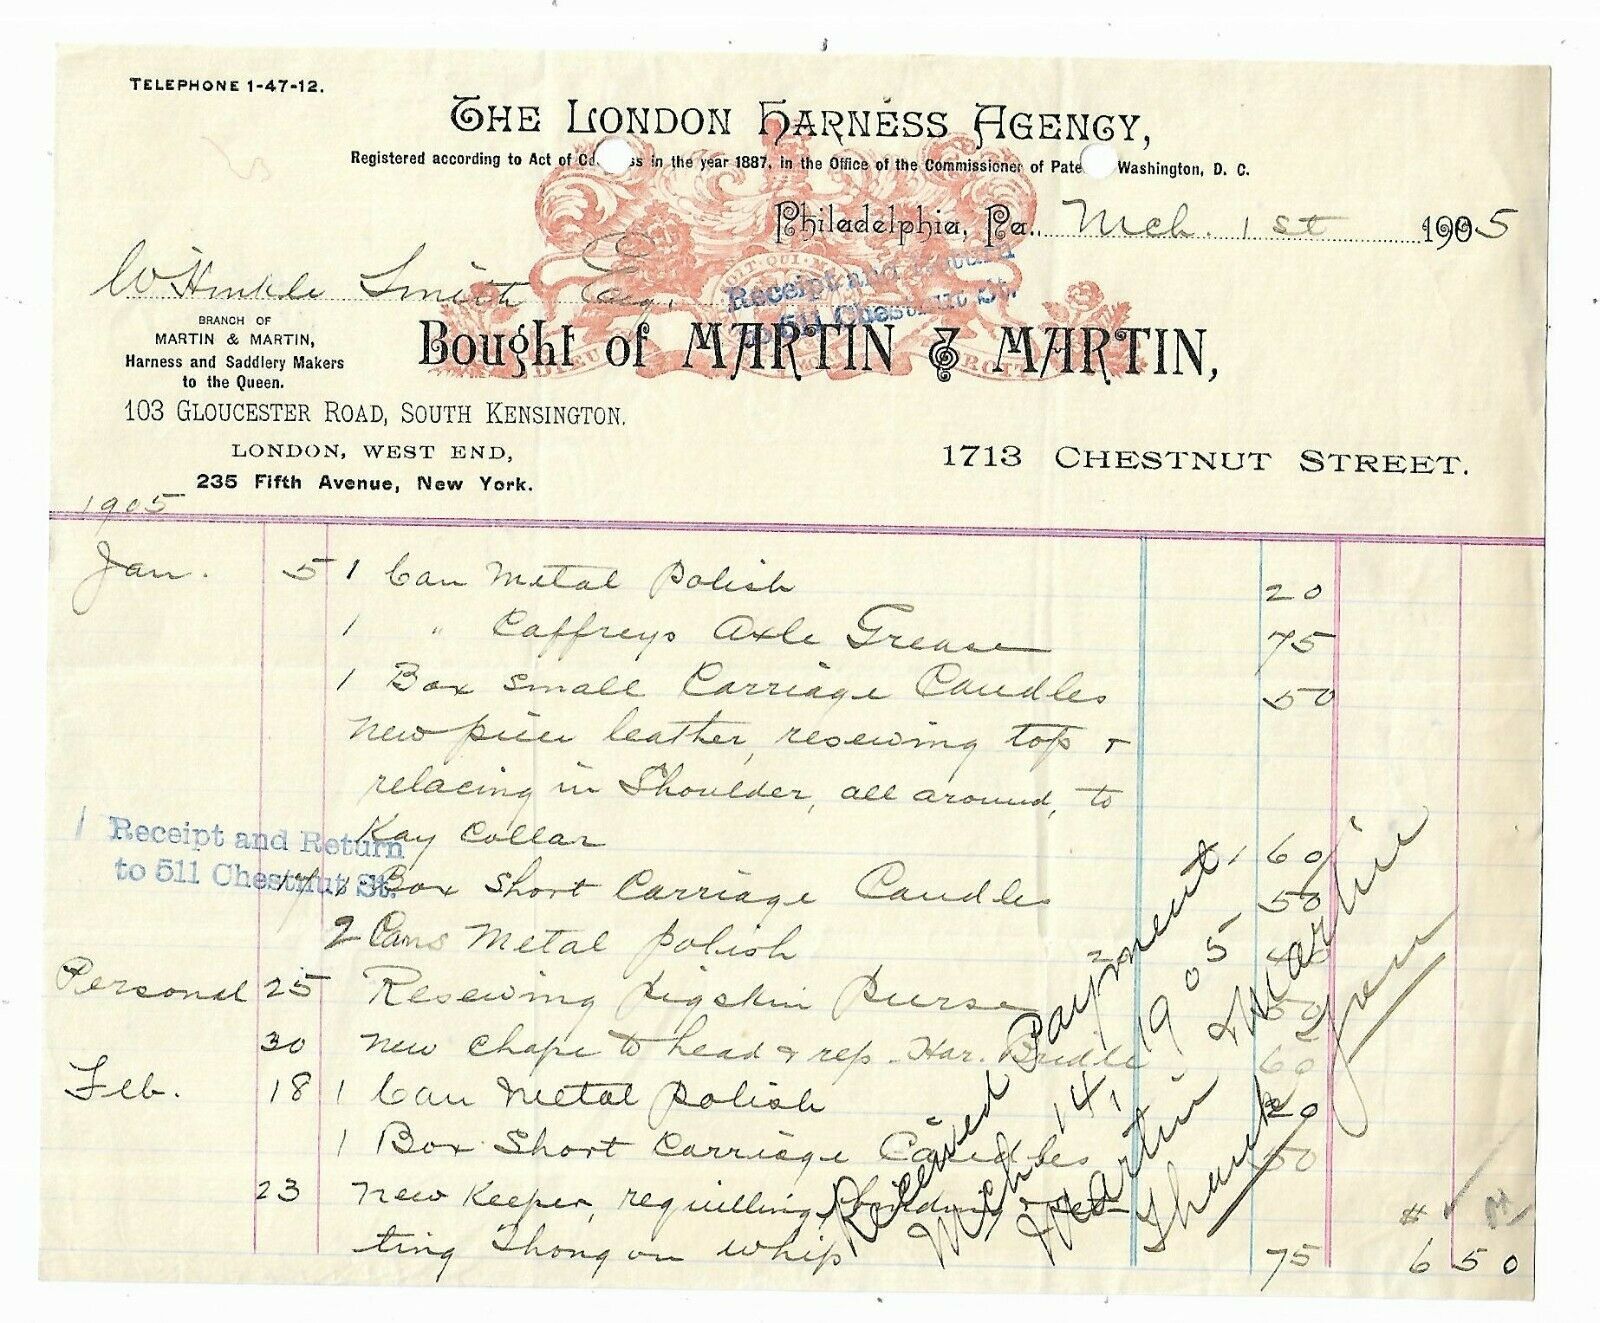 TELEPHONE 1-47-12.
THE LONDON HARNESS AGENCY,
Registered according to Act of Co ss in the year 1887, in the Office of the Commissioner of Pate Washington, D. C.
Philadelphia, Pa., Mch. 1st 1905
W Hinkle Smith Esq.
Receipt and Return
to 511 Chestnut St.
BRANCH OF
MARTIN & MARTIN,
Harness and Saddlery Makers
to the Queen.
Bought of MARTIN & MARTIN,
103 GLOUCESTER ROAD, SOUTH KENSINGTON.
LONDON, WEST END,
235 Fifth Avenue, New York.
1713 CHESTNUT STREET.
1905
Jan. 5 1 Can Metal Polish 20
1 " Caffreys Axle Grease 75
1 Box small Carriage Candles 50
New piece leather, resewing top +
relacing in Shoulder, all around, to
Kay Collar 1 60
Receipt and Return
to 511 Chestnut St.
17 1 Box Short Carriage Candles 50
2 Cans Metal Polish 40
Personal 25 Resewing Pigskin Purse 50
30 New Chape to head & rep. Har. Bridle 60
Feb. 18 1 Can Metal Polish 20
1 Box Short Carriage Candles 50
23 New Keeper, requilling, & put-
ting Thong on whip 75 $ 6 50
Received Payment.
Mch 14, 1905
Martin & Martin
Thank you